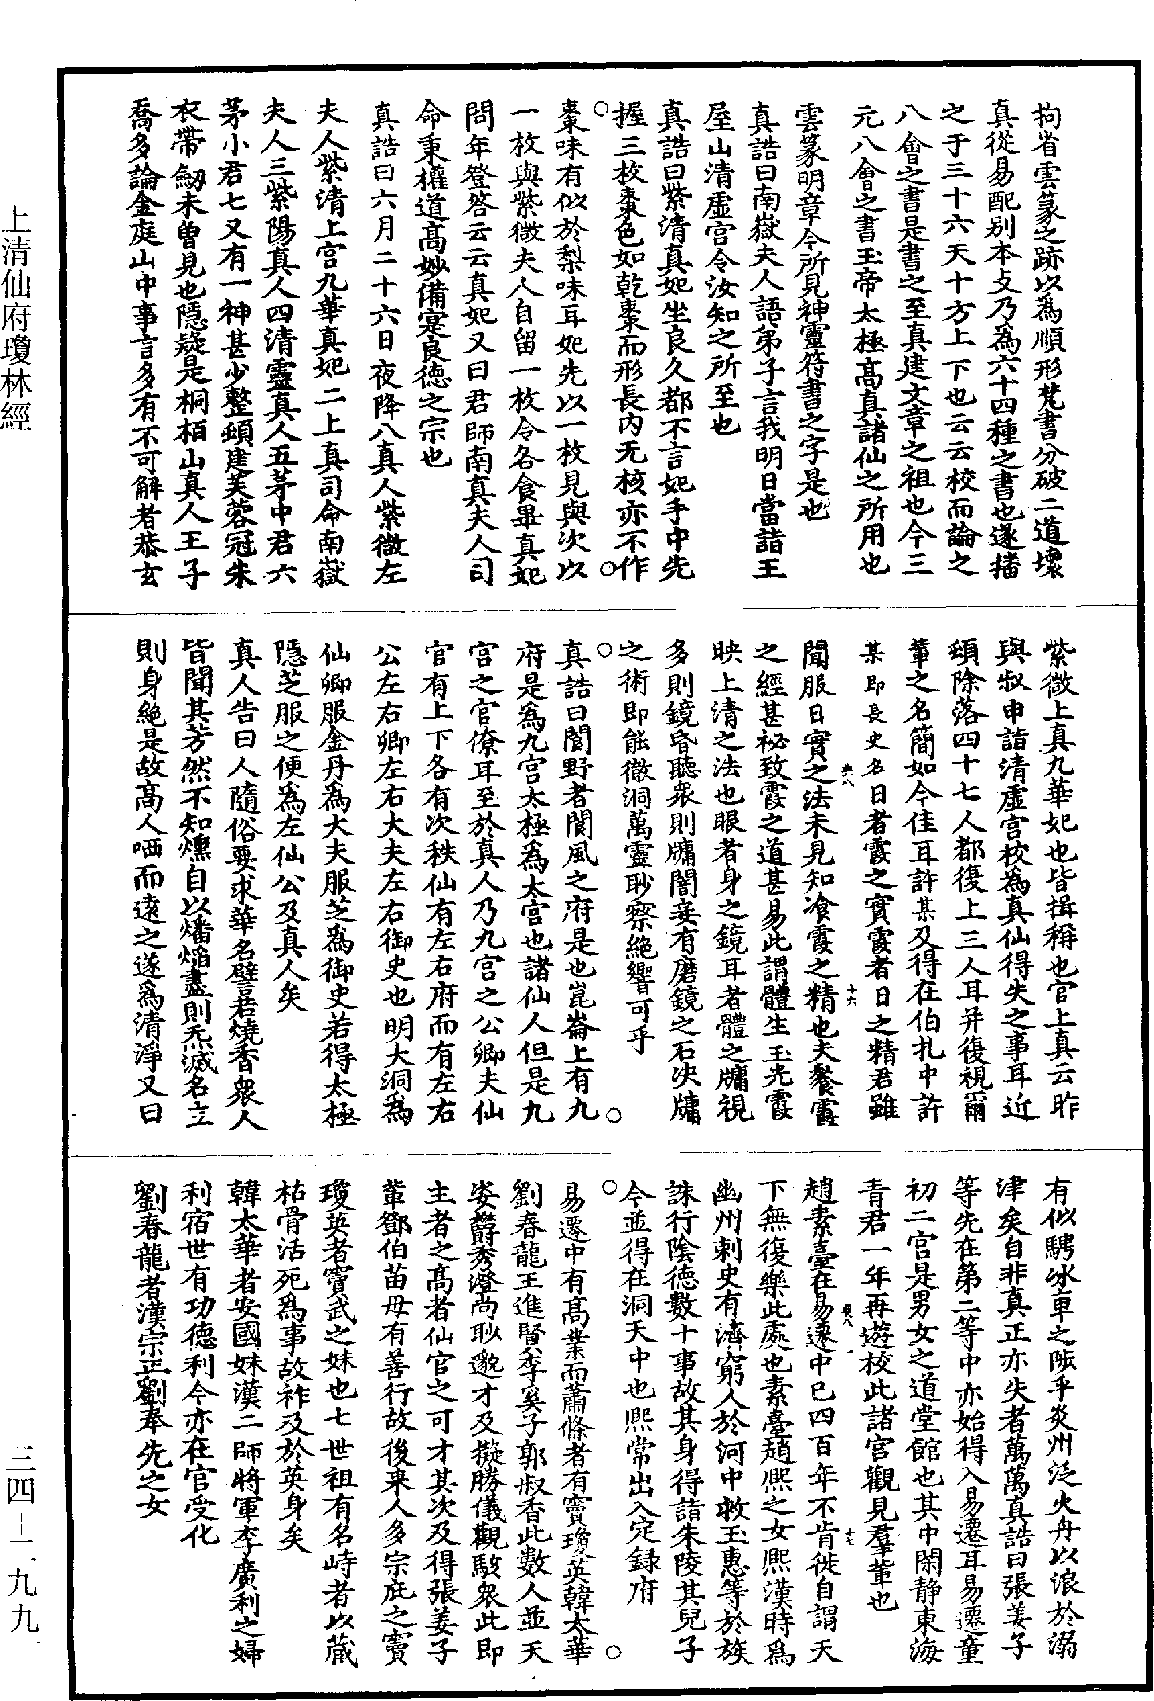 拘省雲篆之跡以為順形梵書分破二道壞
真從易配別本支乃為六十四種之書也遂播
之于三十六天十方上下也云云校而論之
八會之書是書之至真建文章之祖也今三
元八會之書玉帝太極高真諸仙之所用也
雲篆明章今所見神靈符書之字是也
真誥曰南嶽夫人語弟子言我明日當詣王
屋山清虛宮令汝知之所至也
真誥曰紫清真妃坐良久都不言妃手中先
握三枚棗色如乾棗而形長內无核亦不作
棗味有似於梨味耳妃先以一枚見與次以
一枚與紫微夫人自留一枚令各食畢真妃
問年登答云云真妃又曰君師南真夫人司
命秉權道高妙備寔良德之宗也
真誥曰六月二十六日夜降八真人紫微左
夫人紫清上宮九華真妃二上真司命南嶽
夫人三紫陽真人四清靈真人五茅中君六
茅小君七又有一神甚少整頓建芙蓉冠朱
衣帶劒未曾見也隱疑是桐栢山真人王子
喬多論金庭山中事言多有不可解者恭玄
紫微上真九華妃也皆揖稱也官上真云昨
與叔申詣清虛宮校為真仙得失之事耳近
頓除落四十七人都復上三人耳并復視爾
輩之名簡如今佳耳許某及得在伯札中許
某即長史名日者霞之實霞者日之精君雖
聞服日實之法未見知飡霞之精也夫餐霞
之經甚祕致霞之道甚易此謂體生玉光霞
映上清之法也眼者身之鏡耳者體之牖視
多則鏡昏聽衆則牖闇妾有磨鏡之石決牖
之術即能徹洞萬靈眇察絶響可乎
真誥曰閬野者閬風之府是也崑崙上有九
府是為九宮太極為太宮也諸仙人但是九
宮之官僚耳至於真人乃九宮之公卿夫仙
官有上下各有次秩仙有左右府而有左右
公左右卿左右大夫左右御史也明大洞為
仙卿服金丹為大夫服芝為御史若得太極
隱芝服之便為左仙公及真人矣
真人告曰人隨俗要求華名譬若燒香衆人
皆聞其芳然不知燻自以燔焰盡則炁滅名立
則身絶是故高人哂而遠之遂為清淨又曰
有似騁冰車之陟乎炎州泛火舟以浪於溺
津矣自非真正亦失者萬萬真誥曰張姜子
等先在第二等中亦始得入易遷耳易遷童
初二宮是男女之道堂館也其中閑靜東海
青君一年再遊校此諸宮觀見羣輩也
趙素臺在易遷中已四百年不肯徙自謂天
下無復樂此處也素臺趙熙之女熙漢時為
幽州刺史有濟窮人於河中救王惠等於族
誅行陰德數十事故其身得詣朱陵其兒子
今並得在洞天中也熙常出入定錄府
易遷中有高業而蕭條者有竇瓊英韓太華
劉春龍王進賢李奚子郭叔香此數人並天
姿爵秀澄尚眇邈才及擬勝儀觀駭衆此即
主者之高者仙官之可才其次及得張姜子
輩鄧伯苗母有善行故後來人多宗庇之竇
瓊英者竇武之妹也七世祖有名峙者以藏
枯骨活死為事故祚及於英身矣
韓太華者安國妹漢二師將軍李廣利之婦
利宿世有功德利今亦在官受化
劉春龍者漢宗正劉奉先之女
上清仙府瓊林經
三四－二九九